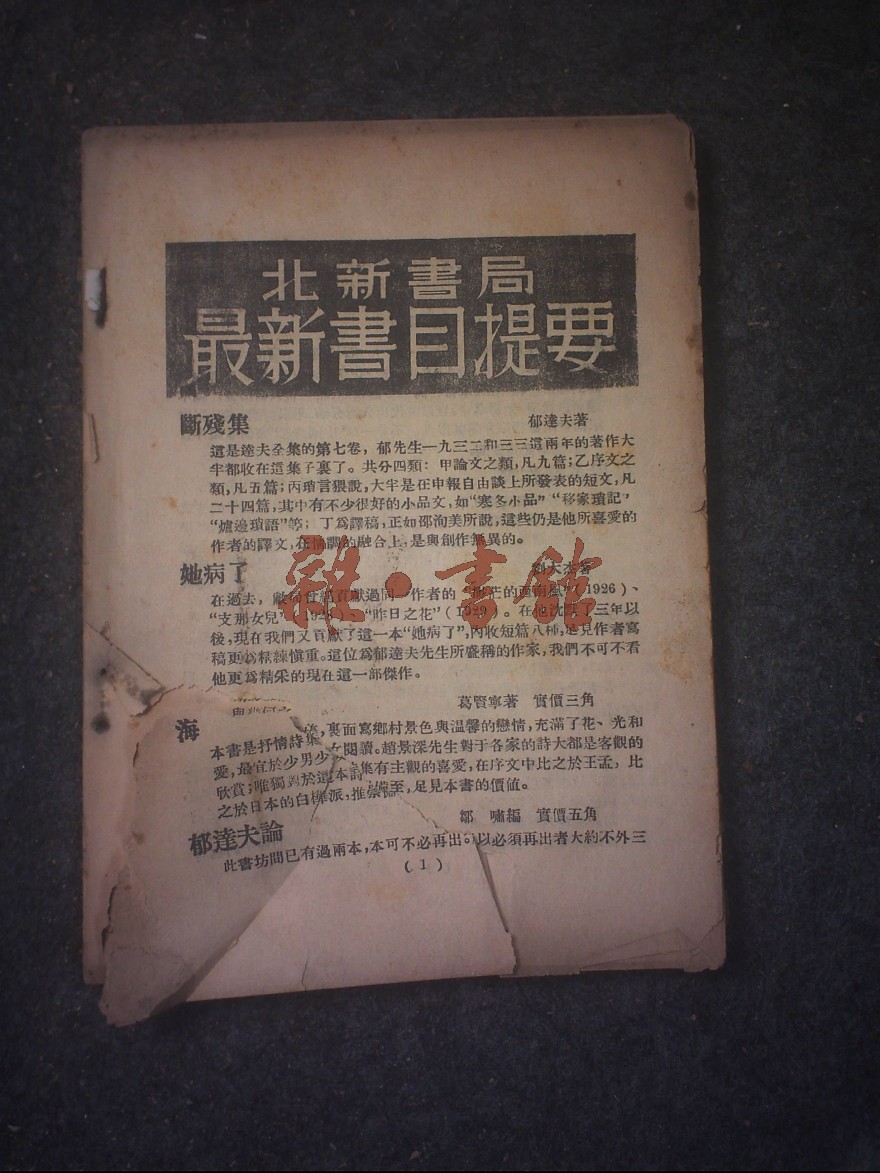 北新書局
最新書目提要
斷殘集 郁達夫著
這是達夫全集的第七卷，郁先生一九三二和三三這兩年的著作大
半都收在這集子裏了。共分四類：甲論文之類，凡九篇；乙序文之
類，凡五篇；丙瑣言猥說，大半是在申報自由談上所發表的短文，凡
二十四篇，其中有不少很好的小品文，如“寒冬小品”“移家瑣記”
“爐邊瑣語”等；丁爲譯稿，正如邵洵美所說，這些仍是他所喜愛的
作者的譯文，在情調的融合上，是與創作無異的。
她病了 劉大杰著
在過去，敝局曾經貢獻過同一作者的“渺茫的西南風”（1926）、
“支那女兒”（1928）、“昨日之花”（1929）。在他沈默了三年以
後，現在我們又貢獻了這一本“她病了”，內收短篇八種，足見作者寫
稿更爲精練愼重。這位爲郁達夫先生所盛稱的作家，我們不可不看
他更爲精采的現在這一部傑作。
海 葛賢寧著 實價三角
本書是抒情詩集，裏面寫鄉村景色與溫馨的戀情，充滿了花、光和
愛，最宜於少男少女閱讀。趙景深先生對于各家的詩大都是客觀的
欣賞；唯獨對於這本詩集有主觀的喜愛，在序文中比之於王孟，比
之於日本的白樺派，推崇備至，足見本書的價值。
郁達夫論 鄒嘯編 實價五角
此書坊間已有過兩本，本可不必再出。以必須再出者大約不外三
（1）
雜·書館